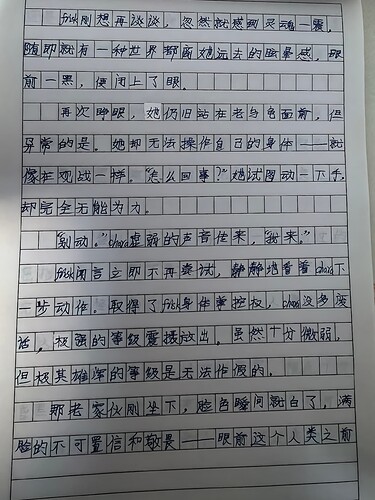 frisk刚想再谈谈，忽然就感到灵魂一震，
随即就有一种世界都离她远去的眩晕感，眼
前一黑，便闭上了眼。
再次睁眼，她仍旧站在老乌龟面前，但
异常的是。她却无法操作自己的身体——就
像在观战一样。“怎么回事？”她试图动一下手，
却完全无能为力。
“别动。”chara虚弱的声音传来，“我来。”
frisk闻言立即不再尝试，静静地看着chara下
一步动作。取得了frisk身体掌控权，chara没多废
话，极强的等级震撼放出。虽然十分微弱，
但极其雄浑的等级是无法作假的。
那老家伙刚坐下，脸色瞬间就白了，满
脸的不可置信和敬畏——眼前这个人类之前